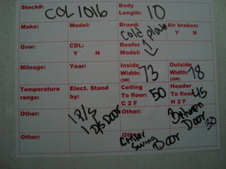 Stock#: COL 1016
Body Length: 10
Make:
Model:
Brand: Cold plate
Air brakes: Y N
Gvw:
CDL: Y N
Reefer Model:
Mileage:
Year:
Inside Width: 73
Outside Width: 78
Temperature range:
Elect. Stand by:
Ceiling To floor: 50
C 2 F
Header To floor: 45
H 2 F
Other:
Other: 1 P/S
D/S Door
Other:
Swing Door
Other: Between Door 50